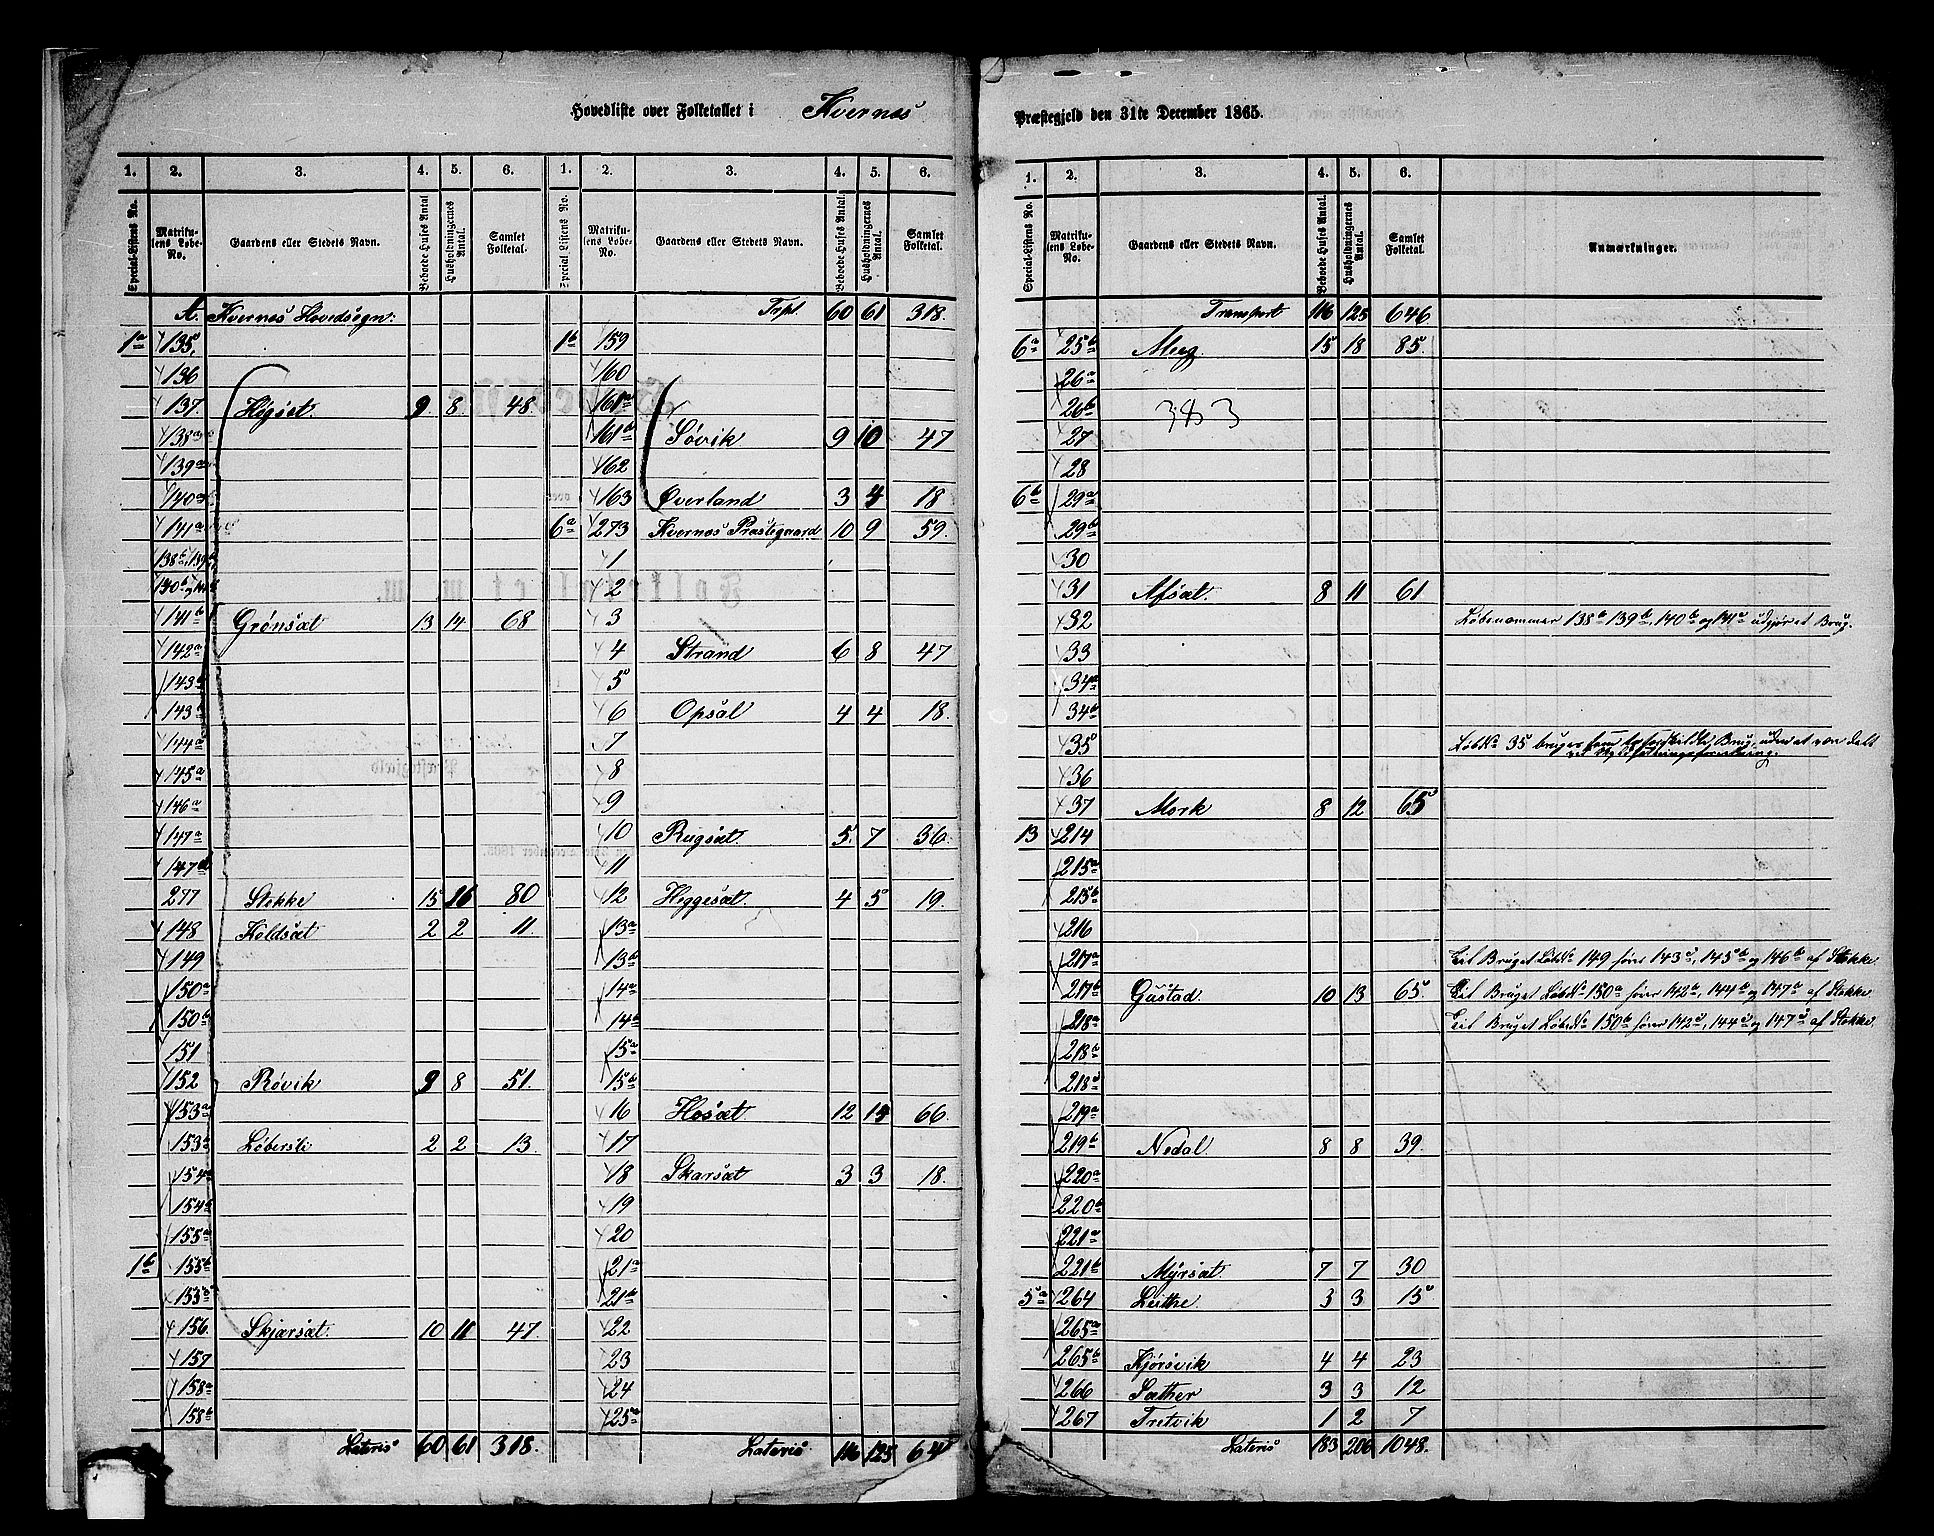 Hovedliste over Folketallet i Kvernes
1. 2. 3. 4. 5. 6. 1. 2. 3. 4. 5. 6.
Special-Listens No. Matrikulens Løbe-No. Gaardens eller Stedets Navn. Beboede Huses Antal Husholdningernes Antal. Samlet Folketal. Special Listens No. Matrikulens Løbe-No. Gaardens eller Stedets Navn. Beboede Huses Antal. Husholdningernes Antal. Samlet Folketal.
A. Kvernes Hovedsogn:
1a 135.
136
137. Høgset. 9 8 48.
138a
139a
140a
141a
138b, 139b
140b og 141b
141b Grønsæt 13 14 68
142a
143a
143b
144a
145a
146a
147a
147d
277 Stokke 15 16 80
148 Koldsæt 2 2 11.
149
150a
150b
151
152 Røvik 9 8 51.
153a
153b Løbersli 2 2 13.
154a
154b
155a
1b 155b
155b
156. Skjærsæt. 10 11 47.
157
158a
158b
Lateris 60 61 318.
Trpt. 60 61 318.
1b 159
160
161a
161b Søvik 9 10 47
162
163 Øverland 3 4 18
6a 273 Kvernes Præstegaard 10 9 59.
1
2
3
4 Strand 6 8 47
5
6 Opsal 4 4 18.
7
8
9
10 Rugsæt. 5. 7 36.
11
12 Heggesæt. 4 5 19.
13a
13b
14a
14b
15a
15b
16 Hosæt. 12 14 66.
17
18 Skarsæt 3 3 18.
19
20
21a
21b
22
23
24
25a
Lateris 116 125 64
Præstegjeld den 31te December 1865.
1. 2. 3. 4. 5. 6.
Special-Listens No. Matrikulens Løbe-No. Gaardens eller Stedets Navn. Beboede Huses Antal. Husholdningernes Antal. Samlet Folketal. Anmærkninger.
Transport 116 125 646
6a 25b Meeg. 15 18 85.
26a
26b 383
27
28
6b 29a
29b
30
31 Afsæt. 8 11 61
32 Løbenummer 138b 139b, 140b og 141a udgjør et Brug.
33
34a
34b
35 LøbNo 35 bruges som særskildt Brug, uden at være delt
36
37 Mork 8 12 65
13 214
215a
215b
216
217a Til Bruget LøbNo 149 hører 143d, 145b og 146b af Stokke.
217b Gustad 10 13 65. Til Bruget LøbeNo 150a hører 142b, 144b og 147a af Stokke
218a Til Bruget LøbeNo 150b hører 142d, 144d og 147d af Stokke.
218b
218d
219a
219b Nedal 8 8 39.
220a
220b
221a
221b Myrsæt. 7 7 30
5a 264 Leithe 3 3 15
265a
265b Kjørsvik 4 4 23
266 Sæther 3 3 12
267 Tretvik 1 2 7
Lateris 183 206 1048.